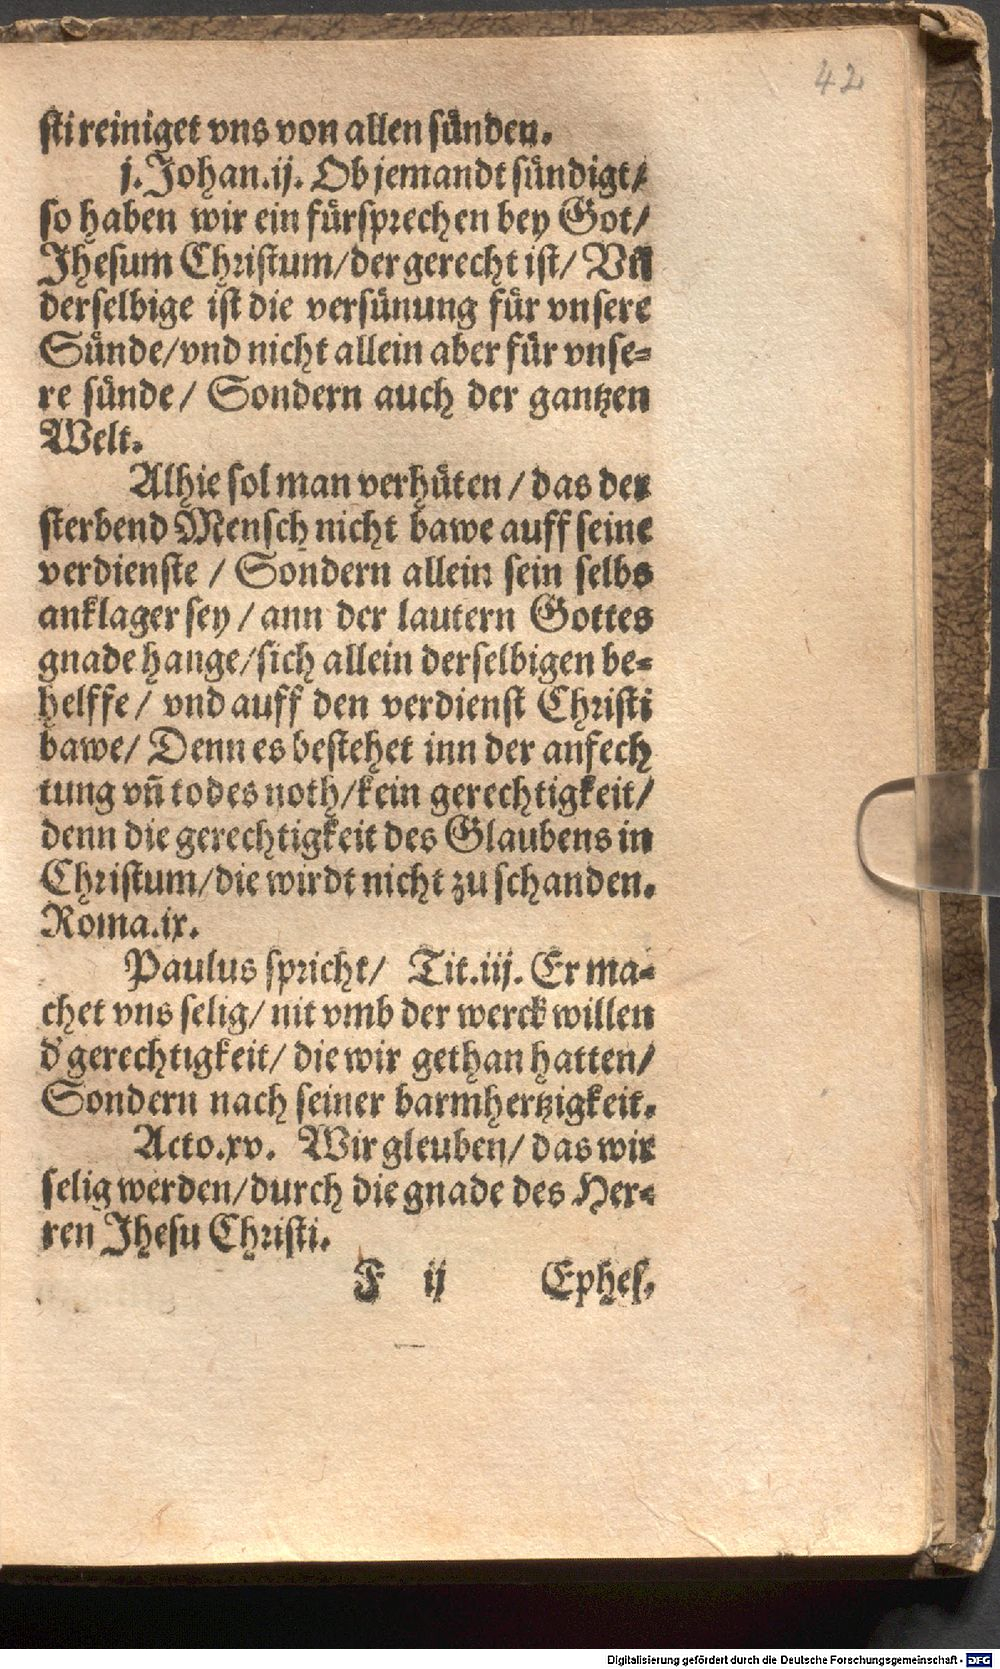 42
sti reiniget vns von allen sünden.
j. Johan.ij. Ob jemandt sündigt/
so haben wir ein fürsprechen bey Got/
Jhesum Christum/der gerecht ist/ Vñ
derselbige ist die versünung für vnsere
Sünde/vnd nicht allein aber für vnse=
re sünde/ Sondern auch der gantzen
Welt.
Alhie sol man verhüten/ das der
sterbend Mensch nicht bawe auff seine
verdienste/ Sondern allein sein selbs
anklager sey/ ann der lautern Gottes
gnade hange/sich allein derselbigen be=
helffe/ vnd auff den verdienst Christi
bawe/ Denn es bestehet inn der anfech
tung vñ todes noth/kein gerechtigkeit/
denn die gerechtigkeit des Glaubens in
Christum/die wirdt nicht zu schanden.
Roma.ix.
Paulus spricht/ Tit.iij. Er ma=
chet vns selig/ nit vmb der werck willen
d' gerechtigkeit/ die wir gethan hatten/
Sondern nach seiner barmhertzigkeit.
Acto.xv. Wir gleuben/ das wir
selig werden/durch die gnade des Her=
ren Jhesu Christi.
F ij Ephes.
Digitalisierung gefördert durch die Deutsche Forschungsgemeinschaft - DFG